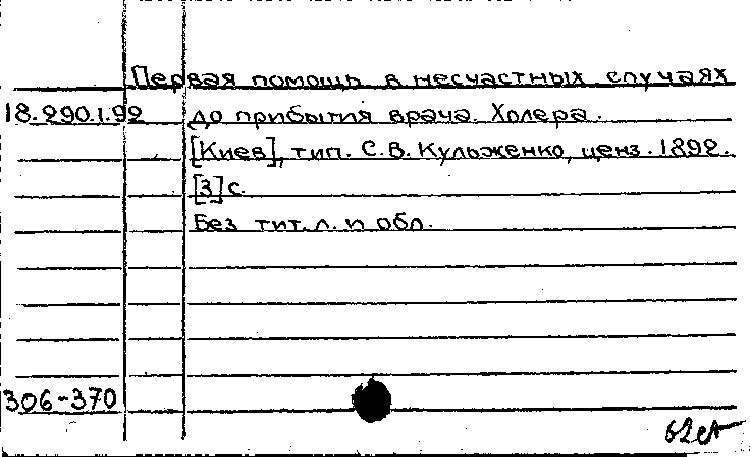 Первая помощь в несчастных случаях
18.290.1.92 до прибытия врача. Холера.
[Киев], тип. С.В. Кульженко, ценз. 1892.
[3] с.
Без тит. л. и обл.
306-370